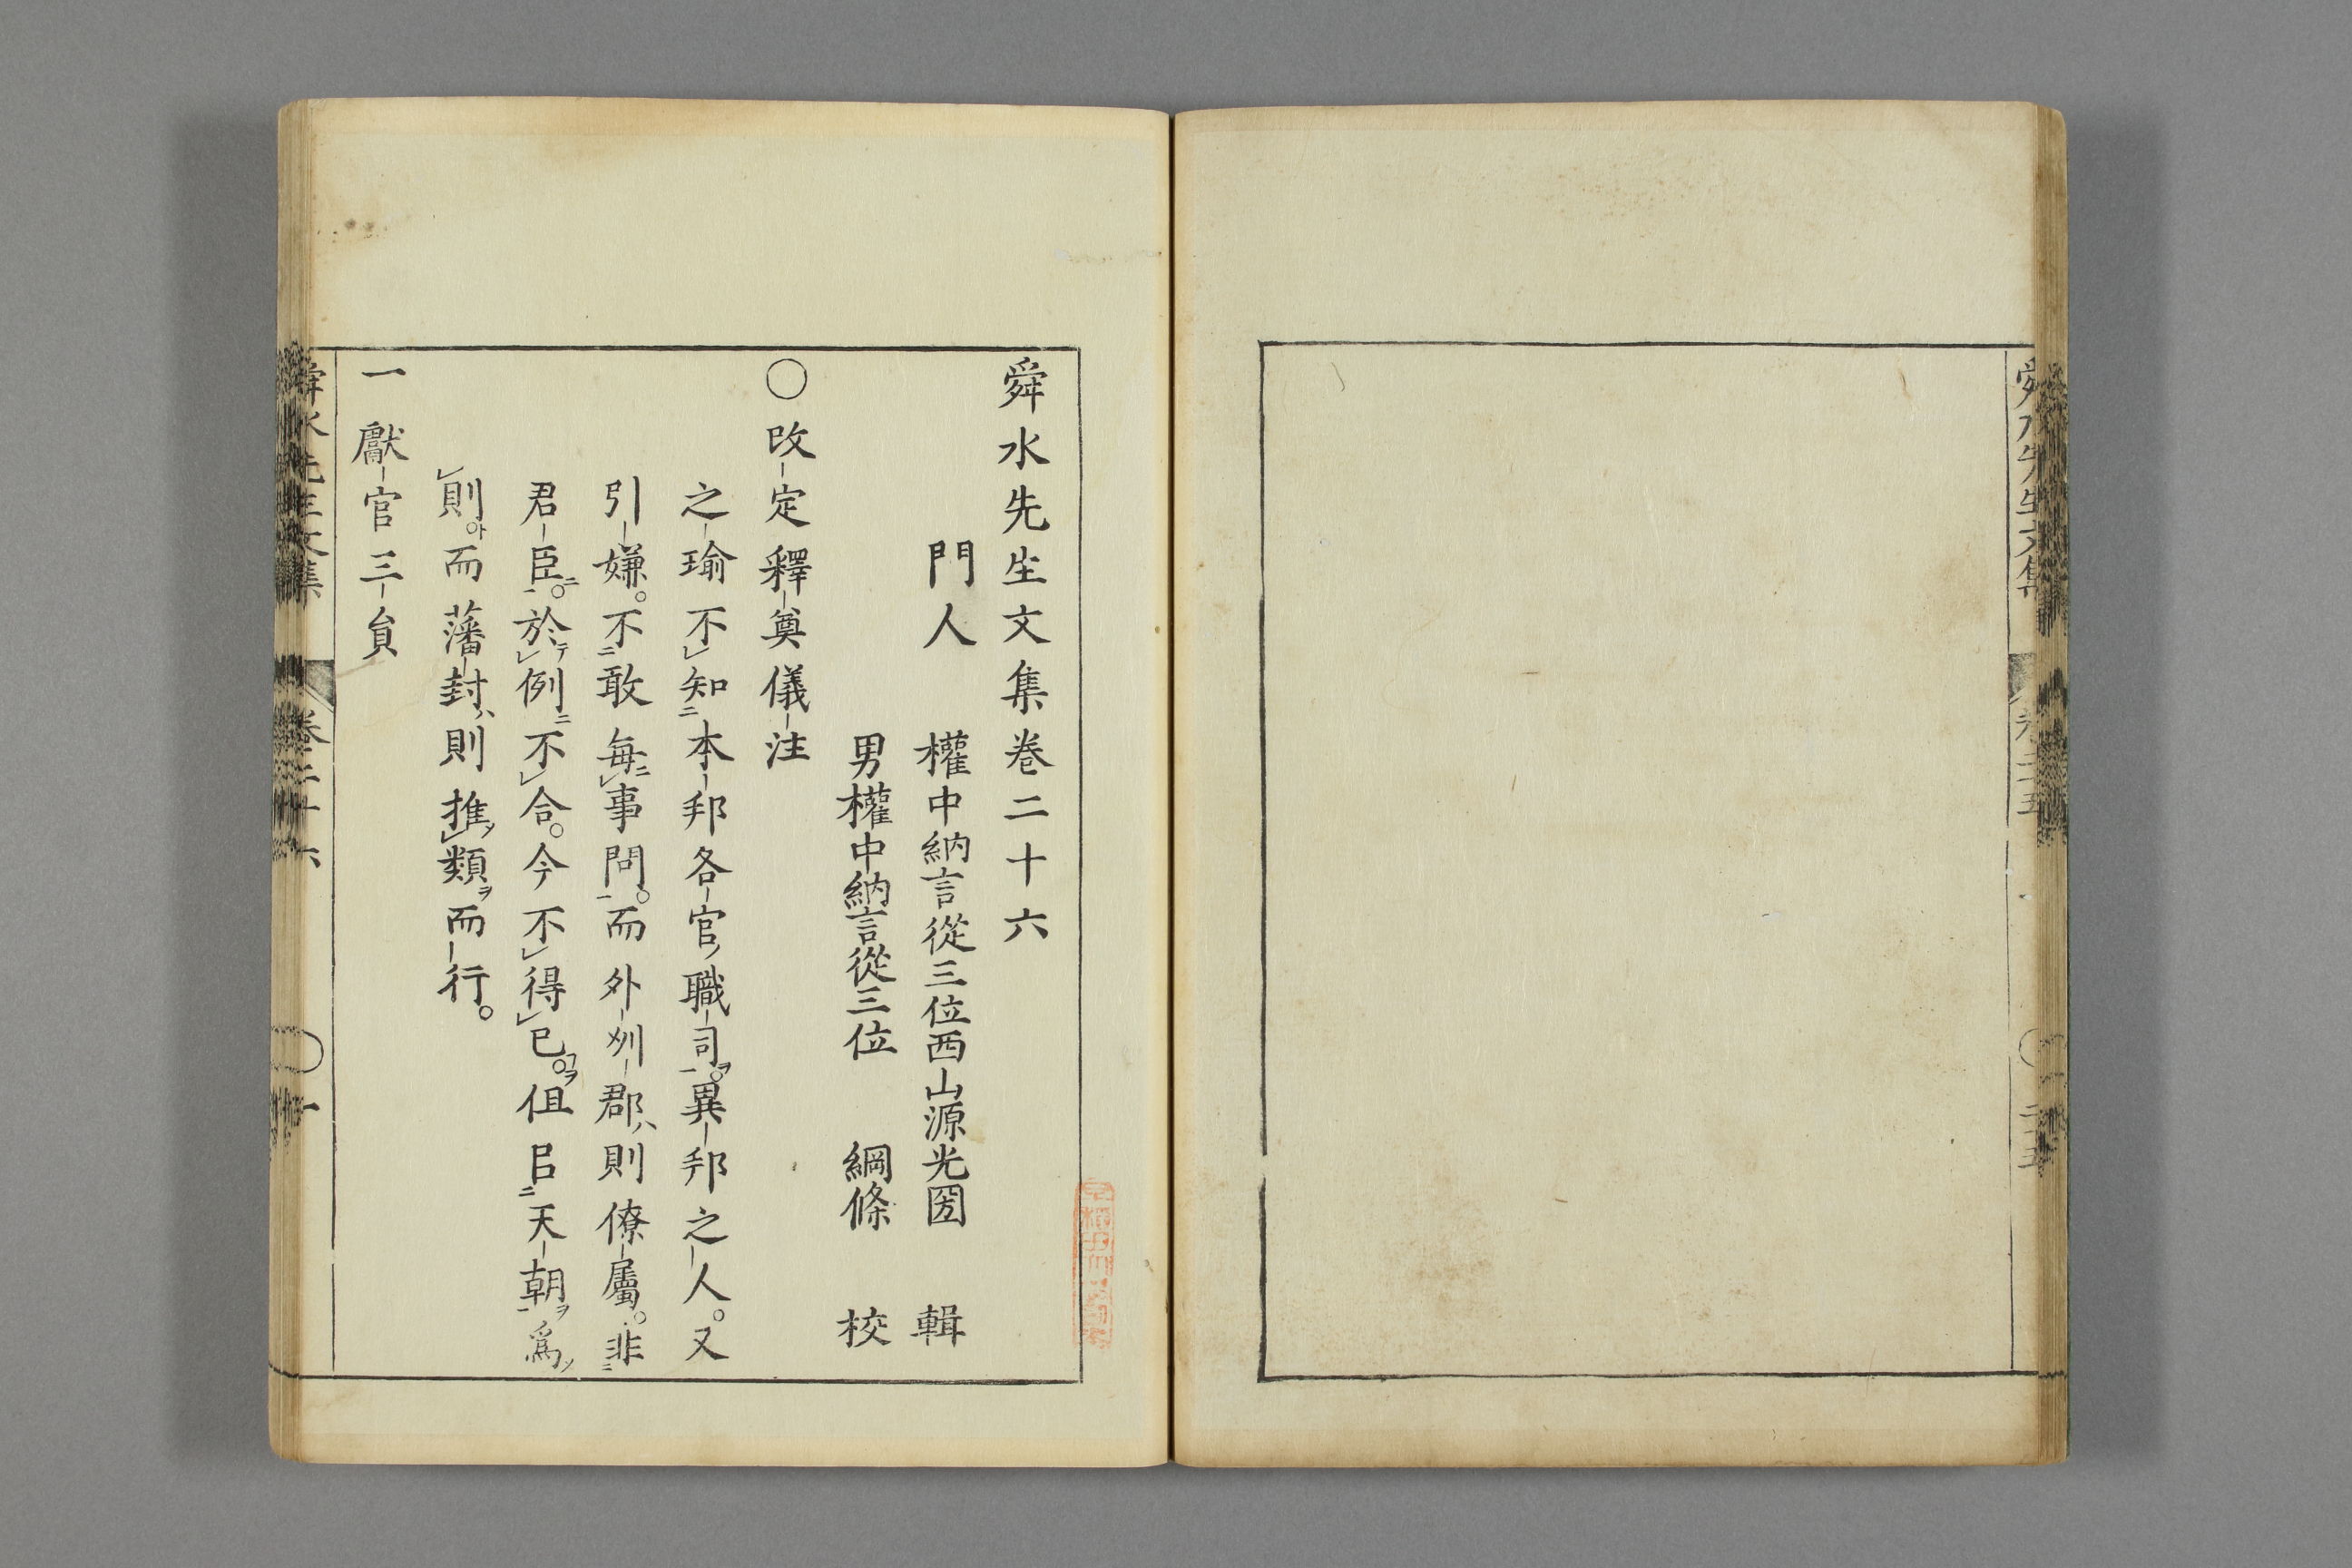 舜水先生文集
舜水先生文集卷二十六
門人 權中納言從三位西山源光圀 輯
男權中納言從三位 綱條 校
〇改定釋奠儀注
之瑜不知本邦各官職司。異邦之人。又
引嫌。不敢每事問。而外州郡則僚屬。非
君臣。於例不合。今不得已。但㠯天朝爲
則。而藩封則推類而行。
一獻官三員
舜水先生文集 卷二十六 一